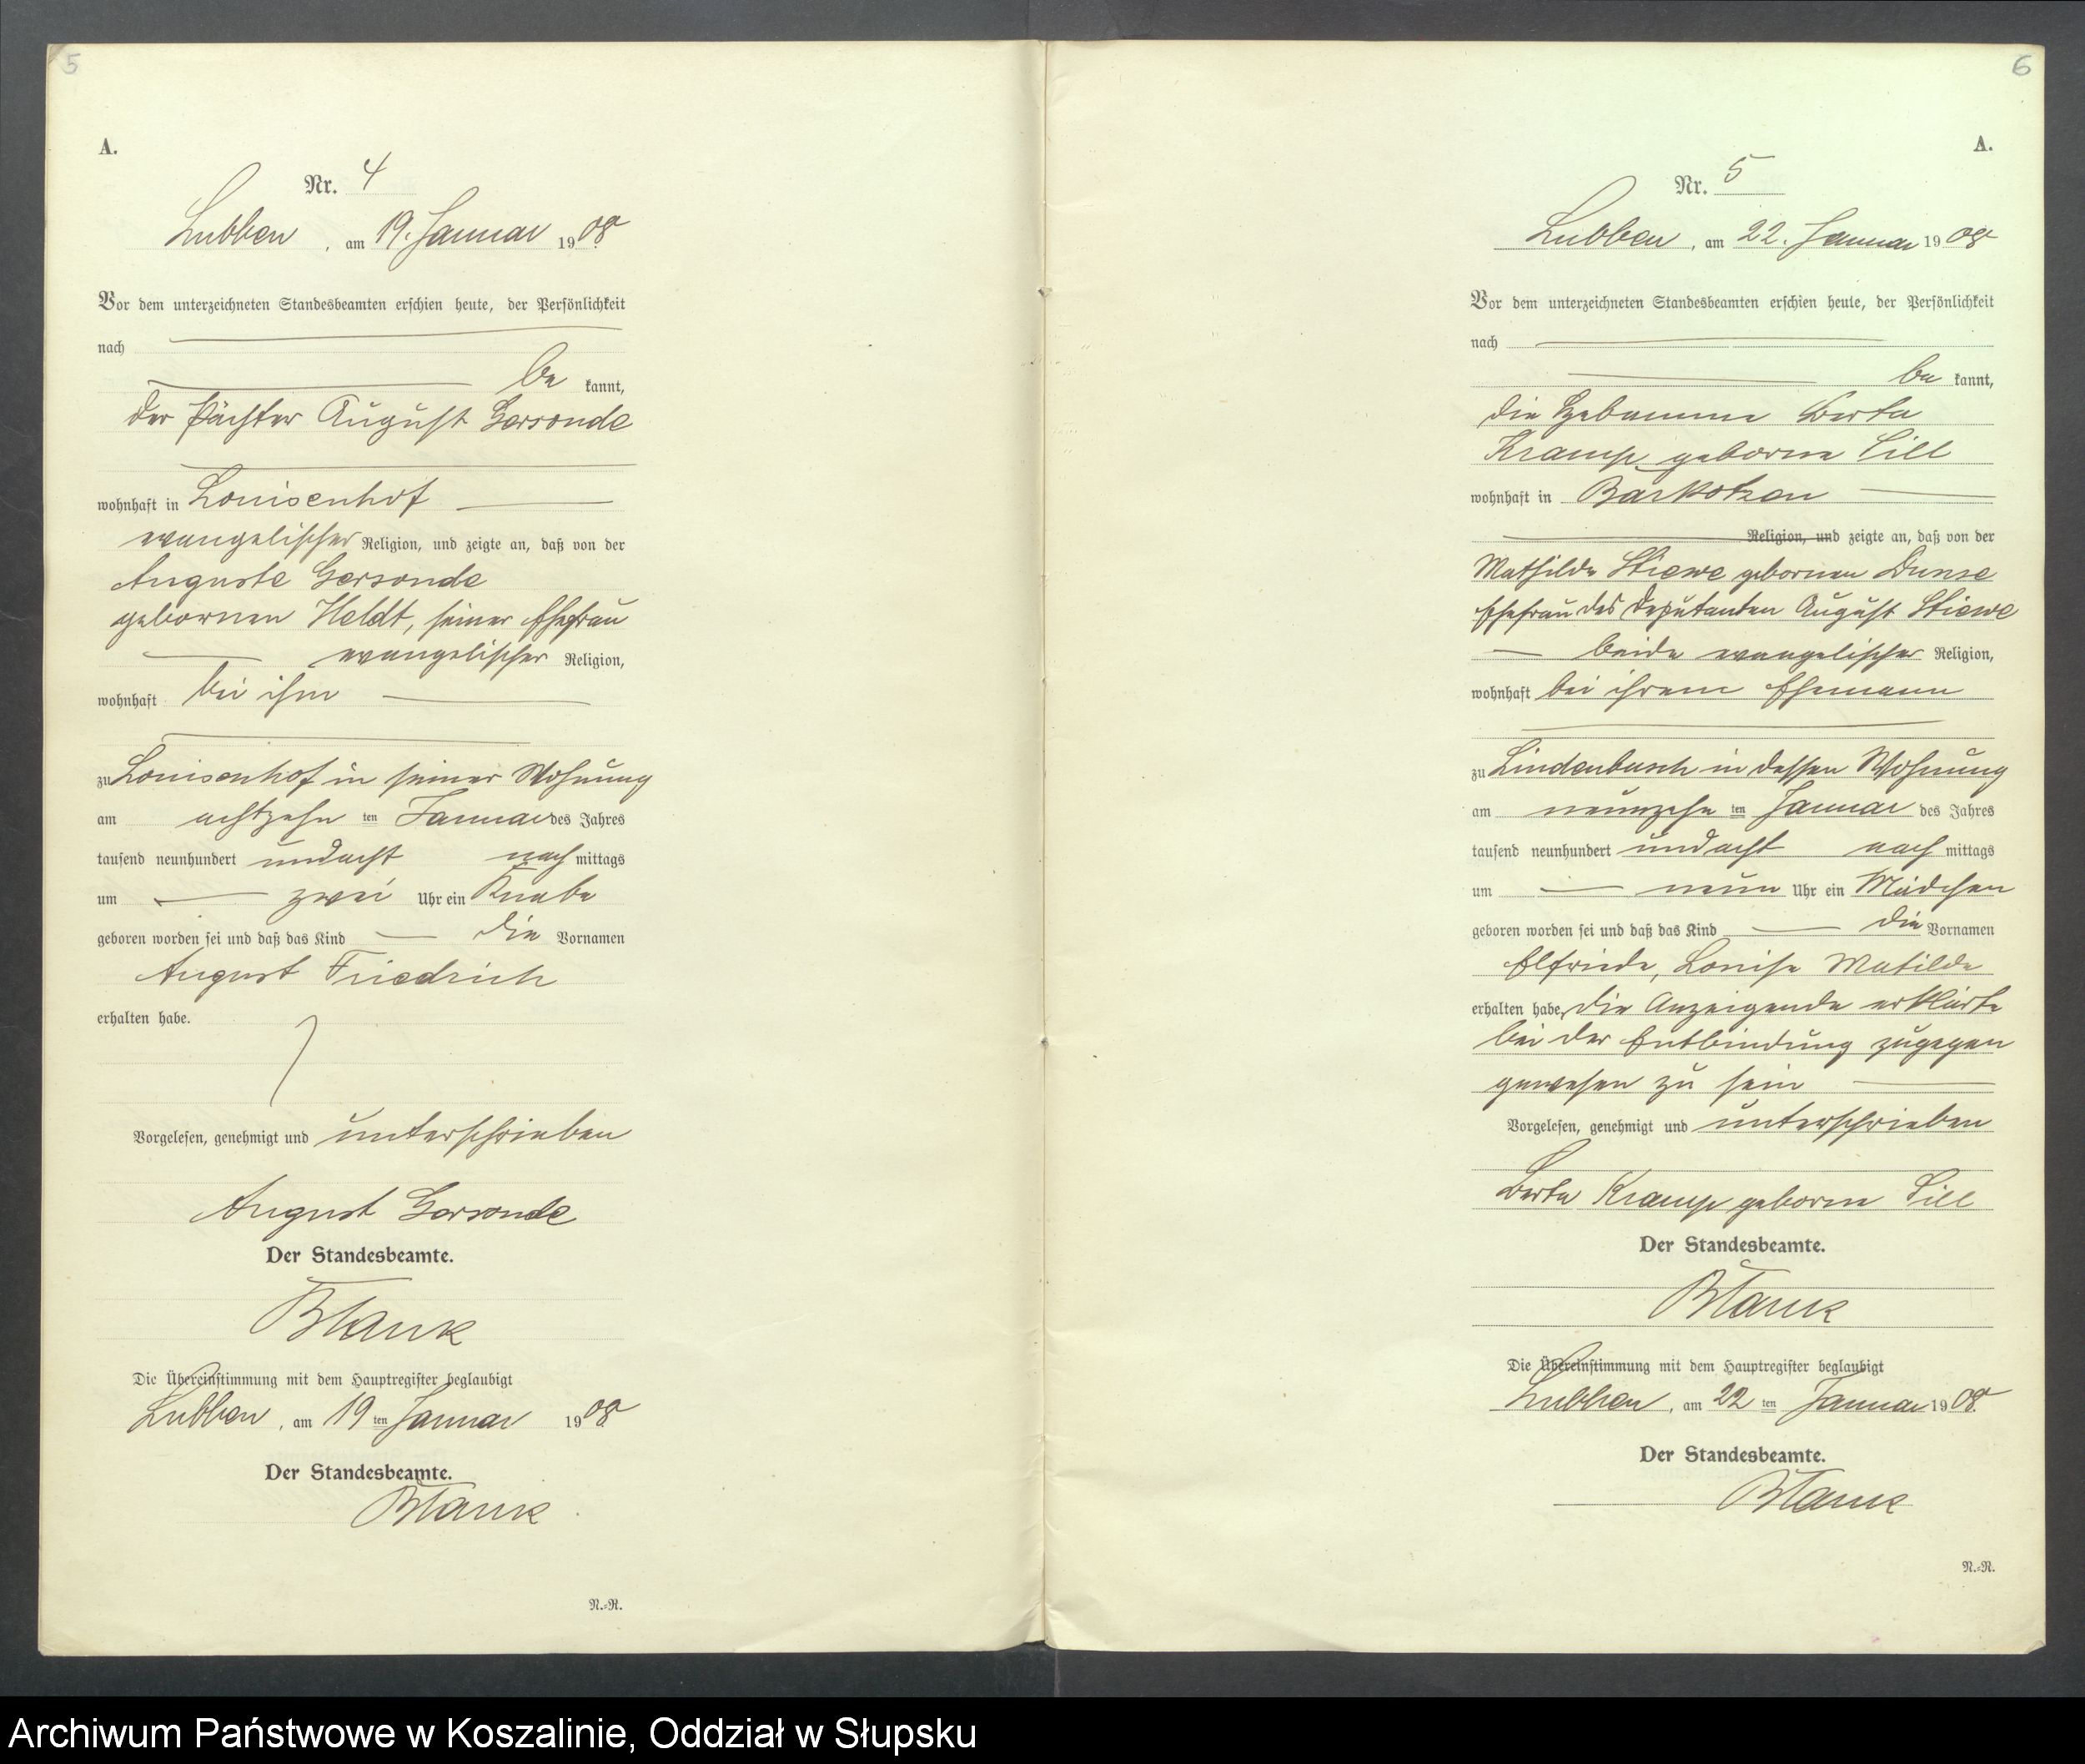 5
A.
Nr. 4
Lubben, am 19. Januar 1908
Vor dem unterzeichneten Standesbeamten erschien heute, der Persönlichkeit
nach
be kannt,
der Pächter August Gersonde
wohnhaft in Louisenhof
evangelischer Religion, und zeigte an, daß von der
Auguste Gersonde
gebornen Heldt, seiner Ehefrau
evangelischer Religion,
wohnhaft bei ihm
zu Louisenhof in seiner Wohnung
am achtzehn ten Januar des Jahres
tausend neunhundert undacht nach mittags
um zwei Uhr ein Knabe
geboren worden sei und daß das Kind die Vornamen
August Friedrich
erhalten habe.
Vorgelesen, genehmigt und unterschrieben
August Gersonde
Der Standesbeamte.
Blank
Die Übereinstimmung mit dem Hauptregister beglaubigt
Lubben, am 19 ten Januar 1908.
Der Standesbeamte.
Blank
N.-R.
6
A.
Nr. 5
Lubben, am 22. Januar 1908
Vor dem unterzeichneten Standesbeamten erschien heute, der Persönlichkeit
nach
be kannt,
die Hebamme Berta
Kramp geborne Lill
wohnhaft in Barkotzen
Religion, und zeigte an, daß von der
Mathilde Stiewe gebornen Dunse
Ehefrau des Deputanten August Stiewe
beide evangelischer Religion,
wohnhaft bei ihrem Ehemann
zu Lindenbusch in dessen Wohnung
am neunzehn ten Januar des Jahres
tausend neunhundert undacht nach mittags
um neun Uhr ein Mädchen
geboren worden sei und daß das Kind die Vornamen
Elfriede, Louise Matilde
erhalten habe, die Anzeigende erklärte
bei der Entbindung zugegen
gewesen zu sein
Vorgelesen, genehmigt und unterschrieben
Berta Kramp geborne Lill
Der Standesbeamte.
Blank
Die Übereinstimmung mit dem Hauptregister beglaubigt
Lubben, am 22 ten Januar 1908.
Der Standesbeamte.
Blank
N.-R.
Archiwum Państwowe w Koszalinie, Oddział w Słupsku